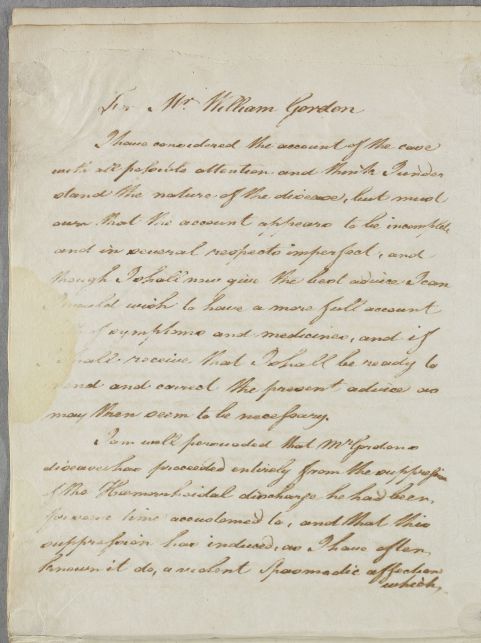 For Mr. William Gordon
I have considered the account of the case
with all possible attention and think I under
stand the nature of the disease, but must
own that the account appears to be incomplete,
and in several respects imperfect, and
though I shall now give the best advice I can
I would wish to have a more full account
of symptoms and medicines, and if
I shall receive that I shall be ready to
mend and correct the present advice as
may then seem to be necessary.
I am well persuaded that Mr Gordons
disease has proceeded entirely from the suppression
of the Hæmorrhoidal discharge he had been,
for some time accustomed to, and that this
suppression has induced, as I have often
known it do, a violent Spasmodic affection
which,